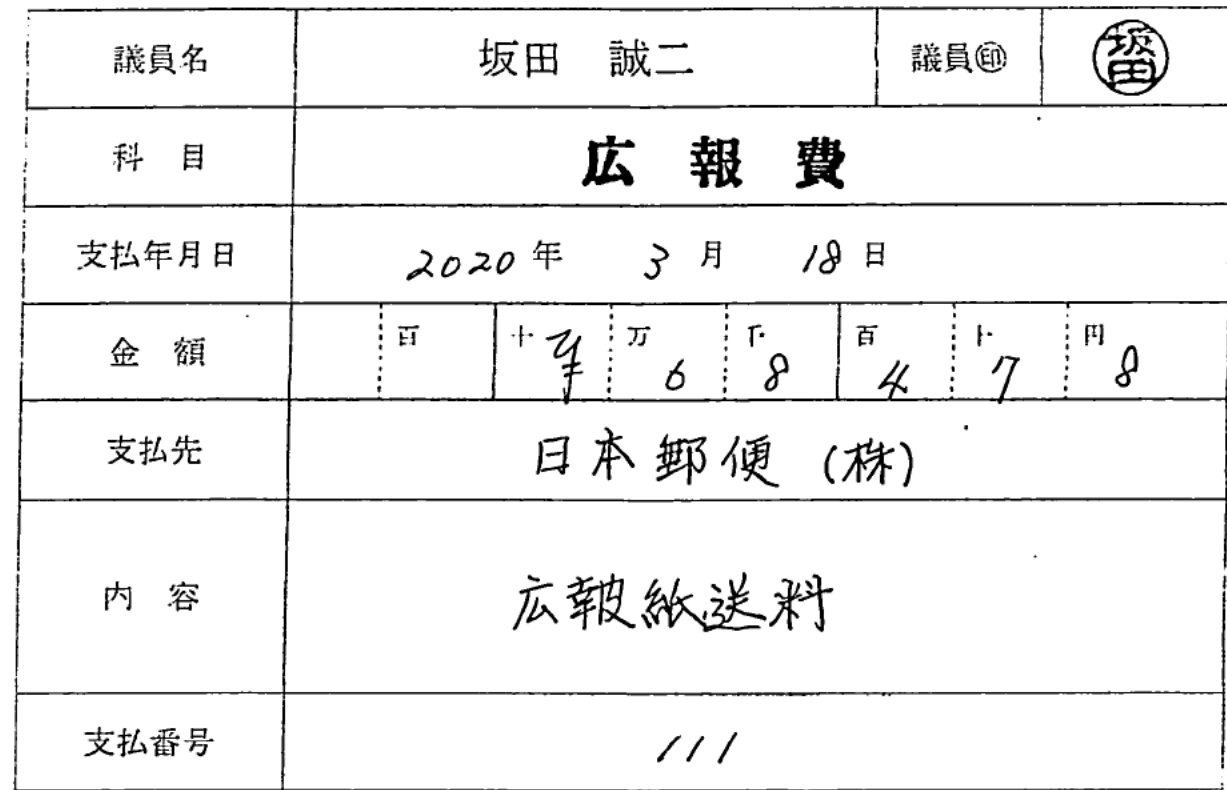 議員名 坂田 誠二 議員㊞ 坂田
科目 広報費
支払年月日 2020年 3月 18日
金額 百 十 ¥ 万 6 千 8 百 4 十 7 円 8
支払先 日本郵便 (株)
内容 広報紙送料
支払番号 111